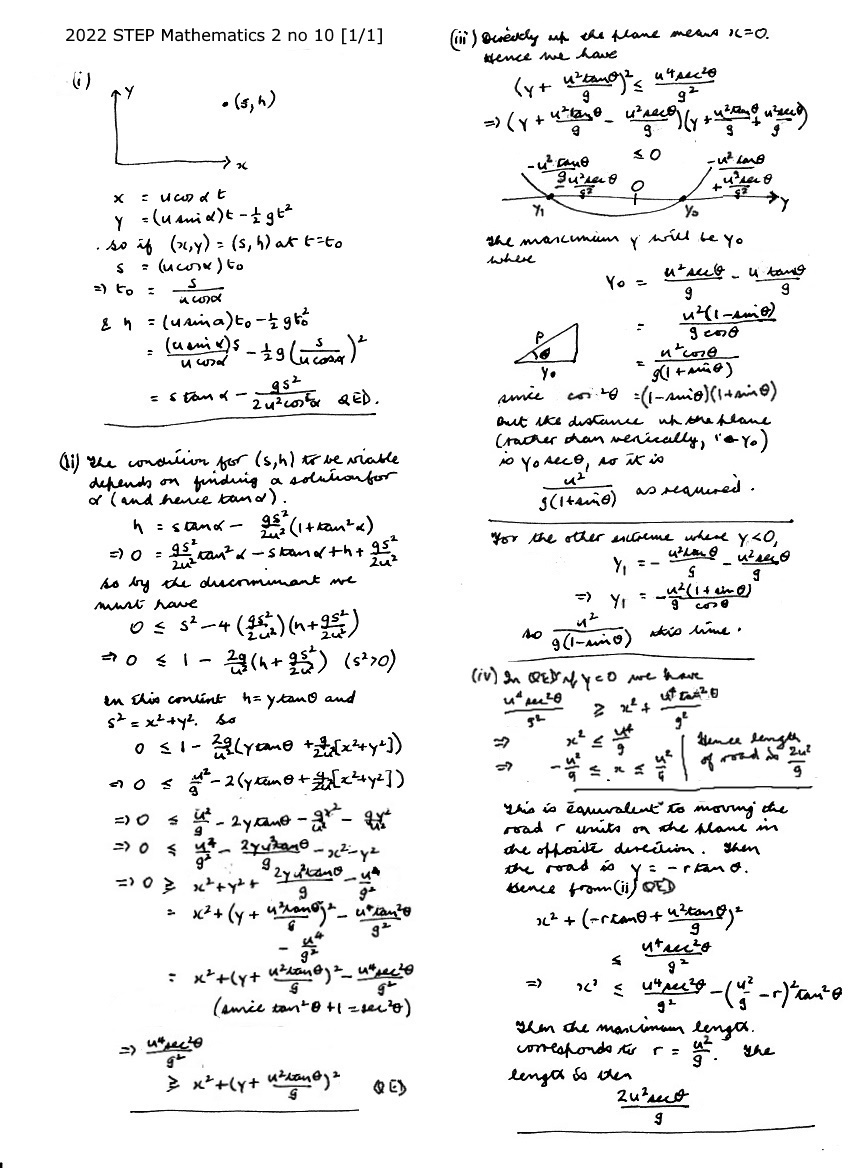 2022 STEP Mathematics 2 no 10 [1/1]
(i)
y
• (s, h)
x
x = u cos α t
y = (u sin α)t - ½ gt²
. so if (x,y) = (s, h) at t=t₀
s = (u cos α) t₀
⇒ t₀ = s / (u cos α)
& h = (u sin α)t₀ - ½ gt₀²
= (u sin α)s / (u cos α) - ½ g (s / (u cos α))²
= s tan α - gs² / (2u² cos² α) QED.
(ii) The condition for (s, h) to be viable
depends on finding a solution for
α (and hence tan α).
h = s tan α - gs²/2u² (1 + tan² α)
⇒ 0 = gs²/2u² tan² α - s tan α + h + gs²/2u²
so by the discriminant we
must have
0 ≤ s² - 4 (gs²/2u²)(h + gs²/2u²)
⇒ 0 ≤ 1 - 2g/u² (h + gs²/2u²) (s²>0)
In this context h = y tan θ and
s² = x² + y². So
0 ≤ 1 - 2g/u² (y tan θ + g/2u² [x² + y²])
⇒ 0 ≤ u²/g - 2(y tan θ + g/2u² [x² + y²])
⇒ 0 ≤ u²/g - 2y tan θ - gx²/u² - gy²/u²
⇒ 0 ≤ u⁴/g² - 2yu² tan θ/g - x² - y²
⇒ 0 ≥ x² + y² + 2yu² tan θ/g - u⁴/g²
= x² + (y + u² tan θ/g)² - u⁴ tan² θ/g²
- u⁴/g²
= x² + (y + u² tan θ/g)² - u⁴ sec² θ/g²
(since tan² θ + 1 = sec² θ)
⇒ u⁴ sec² θ/g²
≥ x² + (y + u² tan θ/g)² QED
(iii) Directly up the plane means x=0.
Hence we have
(y + u² tan θ/g)² ≤ u⁴ sec² θ/g²
⇒ (y + u² tan θ/g - u² sec θ/g)(y + u² tan θ/g + u² sec θ/g)
≤ 0
-u² tan θ/g - u² sec θ/g
-u² tan θ/g + u² sec θ/g
0
y₁ y₀ y
The maximum y will be y₀
where
y₀ = u² sec θ/g - u tan θ/g
= u²(1 - sin θ) / (g cos θ)
P
θ
y₀
= u² cos θ / (g(1 + sin θ))
since cos² θ = (1 - sin θ)(1 + sin θ)
But the distance up the plane
(rather than vertically, i.e. y₀)
is y₀ sec θ, so it is
u² / (g(1 + sin θ)) as required.
For the other extreme where y<0,
y₁ = - u² tan θ/g - u² sec θ/g
⇒ y₁ = - u²(1 + sin θ) / (g cos θ)
so u² / (g(1 - sin θ)) this time.
(iv) In QED if y=0 we have
u⁴ sec² θ/g² ≥ x² + u⁴ tan² θ/g²
⇒ x² ≤ u⁴/g
⇒ - u²/g ≤ x ≤ u²/g
Hence length
of road is 2u²/g
This is equivalent to moving the
road r units on the plane in
the opposite direction. Then
the road is y = -r tan θ.
Hence from (ii) QED
x² + (-r tan θ + u² tan θ/g)²
≤ u⁴ sec² θ/g²
⇒ x² ≤ u⁴ sec² θ/g² - (u²/g - r)² tan² θ
Then the maximum length.
corresponds to r = u²/g. The
length is then
2u² sec θ/g